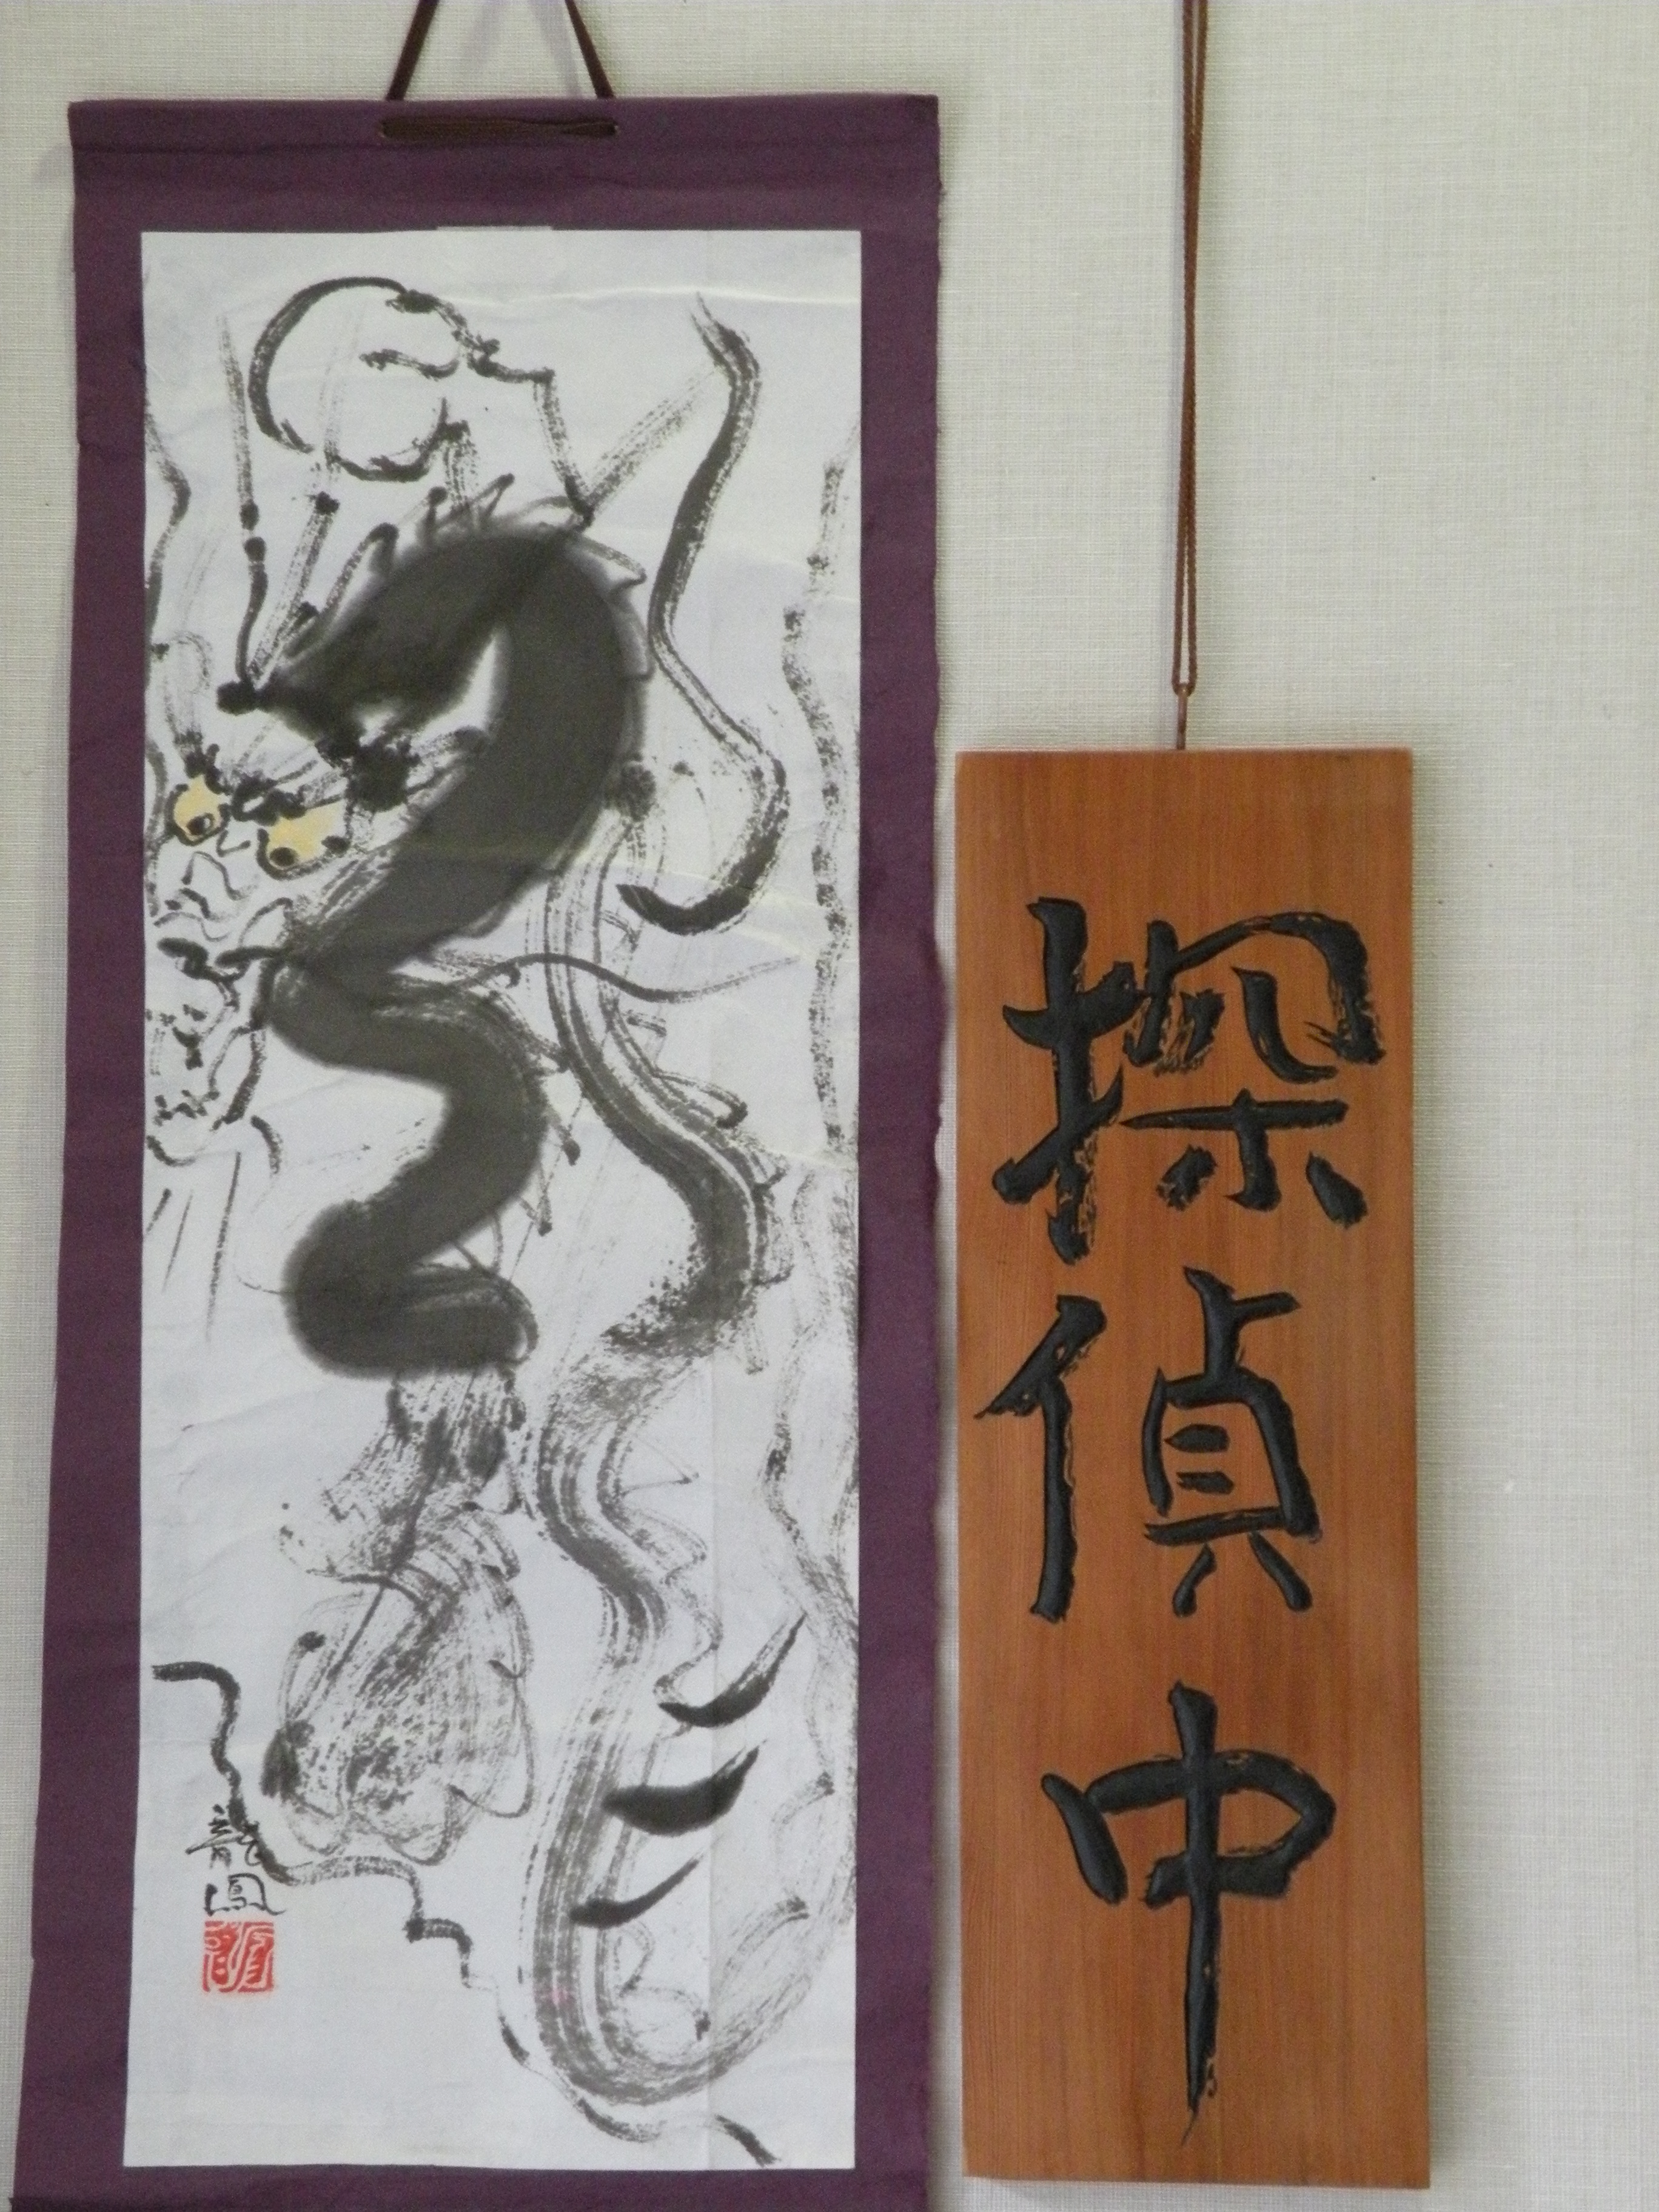 探偵中
龍鳳